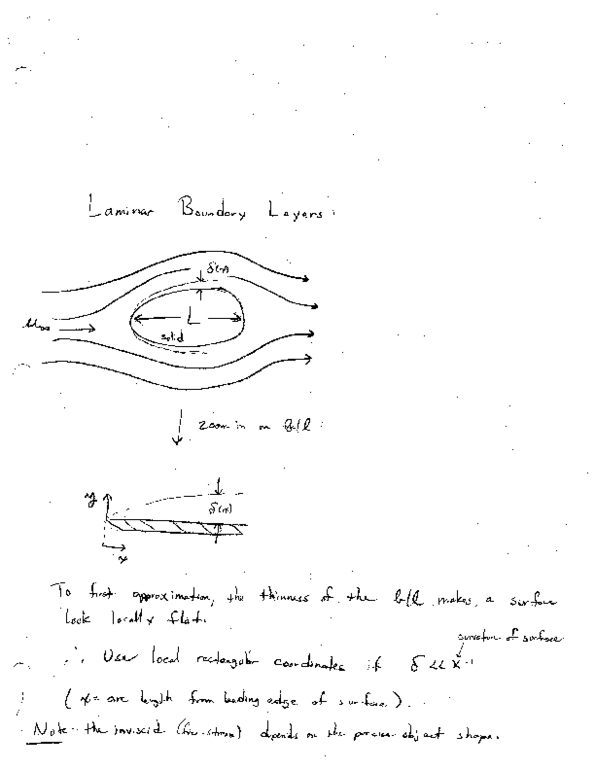 Laminar Boundary Layers:
δ(x)
u∞
L
solid
zoom in on b/l
y
δ(x)
x
To first approximation, the thinness of the b/l makes a surface
look locally flat.
curvature of surface
∴ Use local rectangular coordinates if δ << K⁻¹
(x = arc length from leading edge of surface.)
Note: the inviscid (free-stream) depends on the precise object shape.